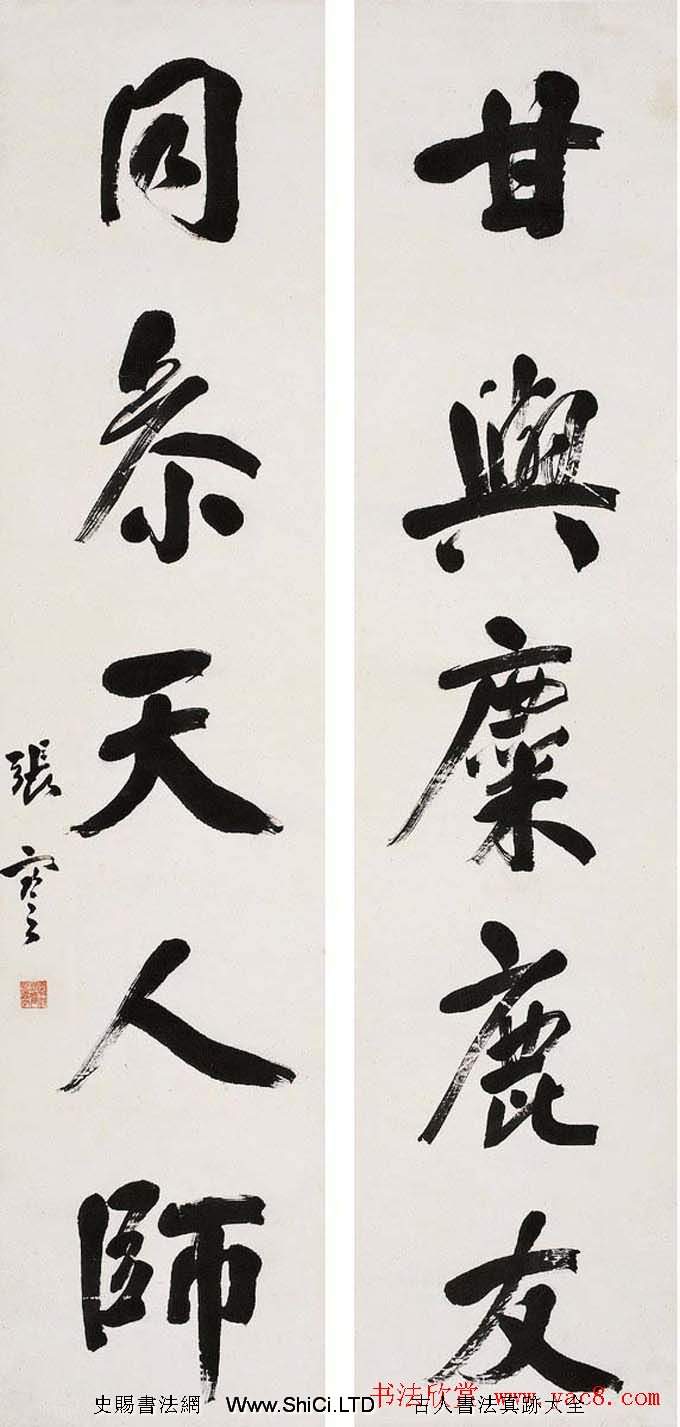 甘與麋鹿友
同參天人師
張謇
史賜書法網 Www.ShiCi.LTD 古人書法真跡大全
书法欣赏 www.yac8.com